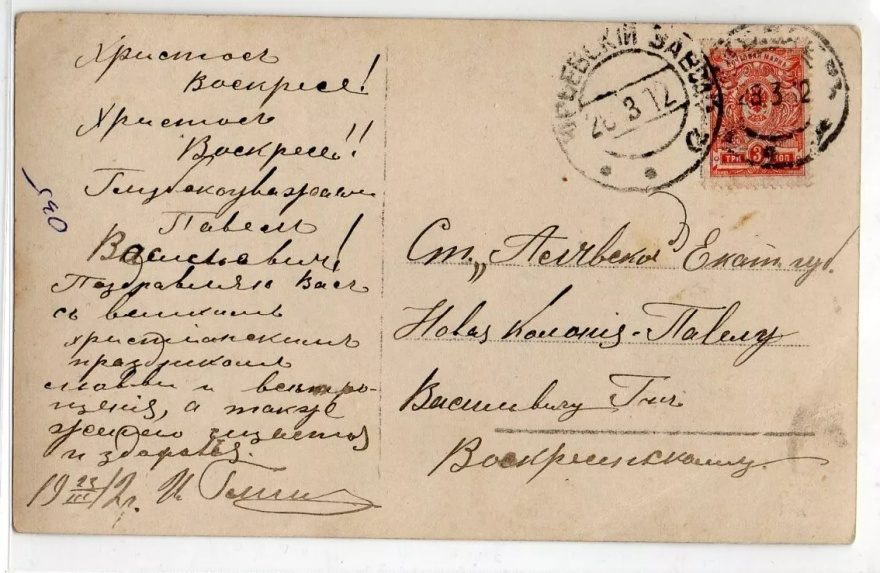 Христосъ
Воскресе!
Христосъ
Воскресе!!
Глубокоуважаемый
Павелъ
Васильевичъ!
Поздравляю Васъ
съ великимъ
христіанскимъ
праздникомъ
любви и всепро-
щенія, а также
желаю счастья
и здоровья.
19 23/III 12 г. И.
ЮРЬЕВСКІЙ ЗАВОДЪ
28 3 12
28 3 12
ПОЧТОВАЯ МАРКА
ТРИ 3 КОП
Ст. „ Екат. губ.
Новая Колонія - Павелу
Васильевичу Гну
Воскресенскому.